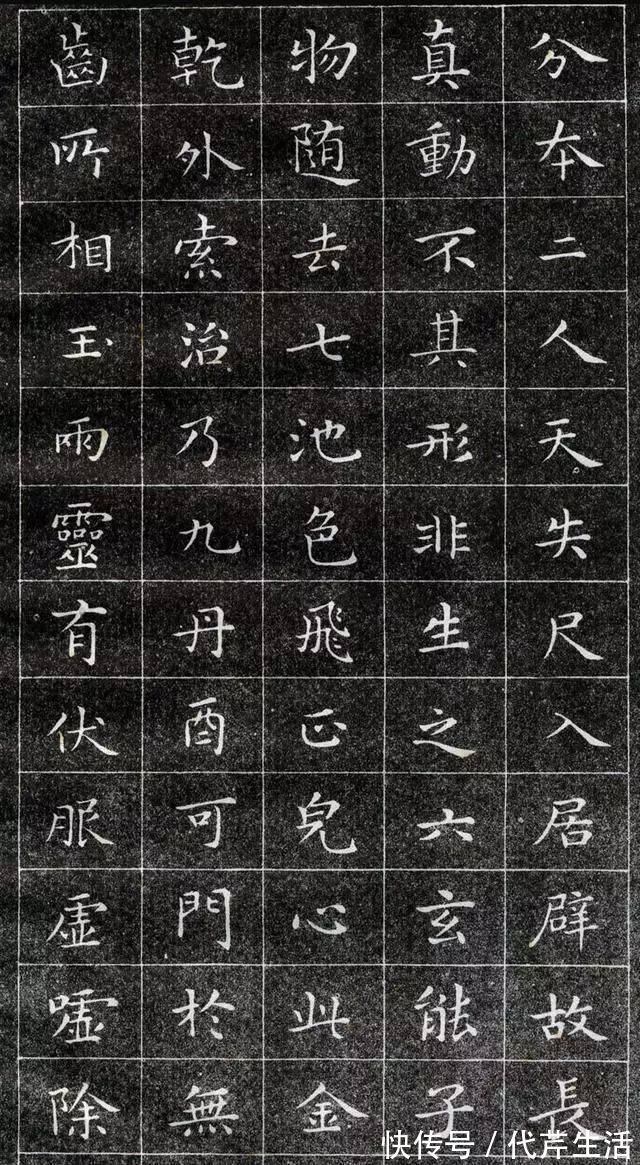 分本二人天失尺入居辟故長
真動不其形非生之六玄能子
物随去七池色飛正皃心此金
乾外索治乃九丹酉可門於無
齒所相玉雨靈有伏服虚嘘除
快传号/代芹生活